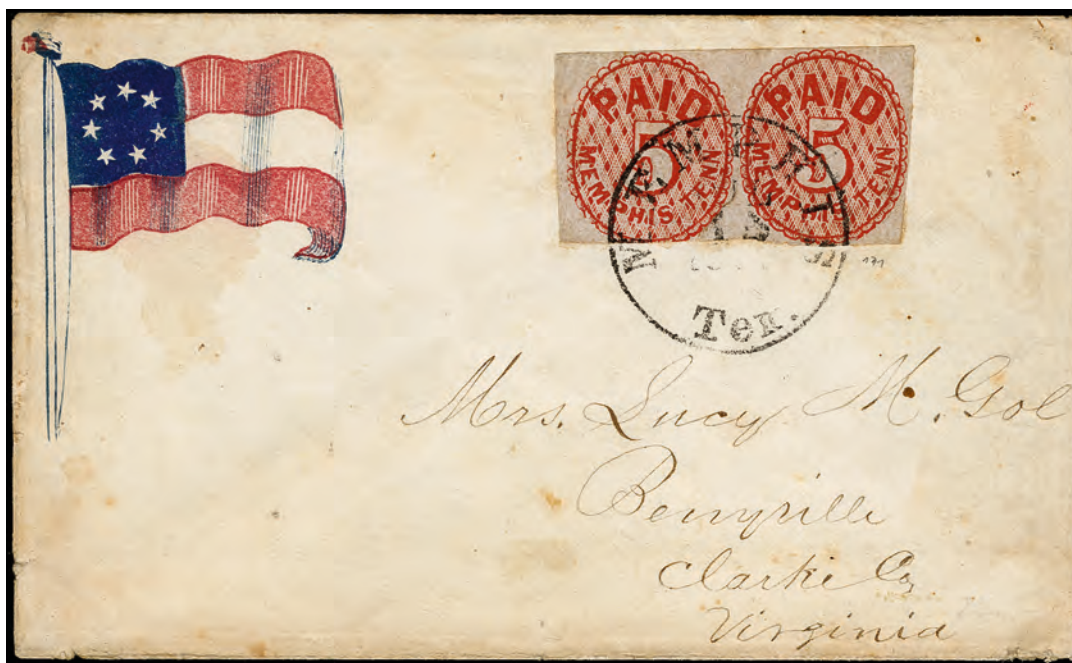 PAID
5
MEMPHIS, TENN
PAID
5
MEMPHIS, TENN
MEMPHIS
Ten.
171
Mrs. Lucy M. Gol
Berryville
Clarke Co,
Virginia